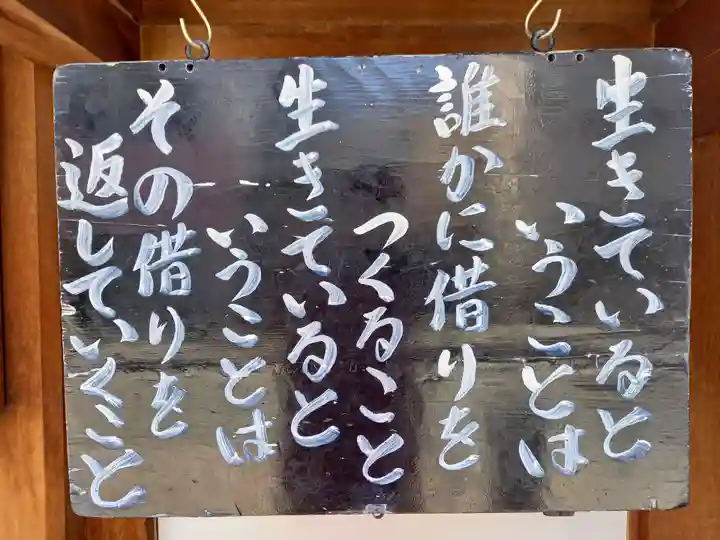 生きていると
いうことは
誰かに借りを
つくること
生きていると
いうことは
その借りを
返していくこと